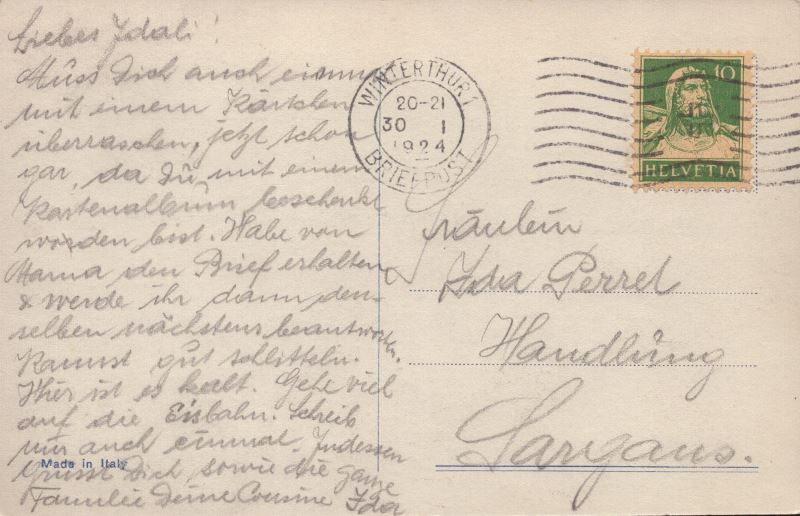 Liebes Idali!
Muss Dich auch einmal
mit einem Kärtchen
überraschen, jetzt schon
gar, da Du mit einem
Kartenalbum beschenkt
worden bist. Habe von
Mama den Brief erhalten
& werde ihr dann den-
selben nächstens beantworten.
Kannst gut schlitteln.
Hier ist es kalt. Gehe viel
auf die Eisbahn. Schreib
mir auch einmal. Indessen
grüsst Dich, sowie die ganze
Familie Deine Cousine Ida
Made in Italy
WINTERTHUR 1
20-21
30 I
1924
BRIEFPOST
10
HELVETIA
Fräulein
Ida Perret
Handlung
Sargans.